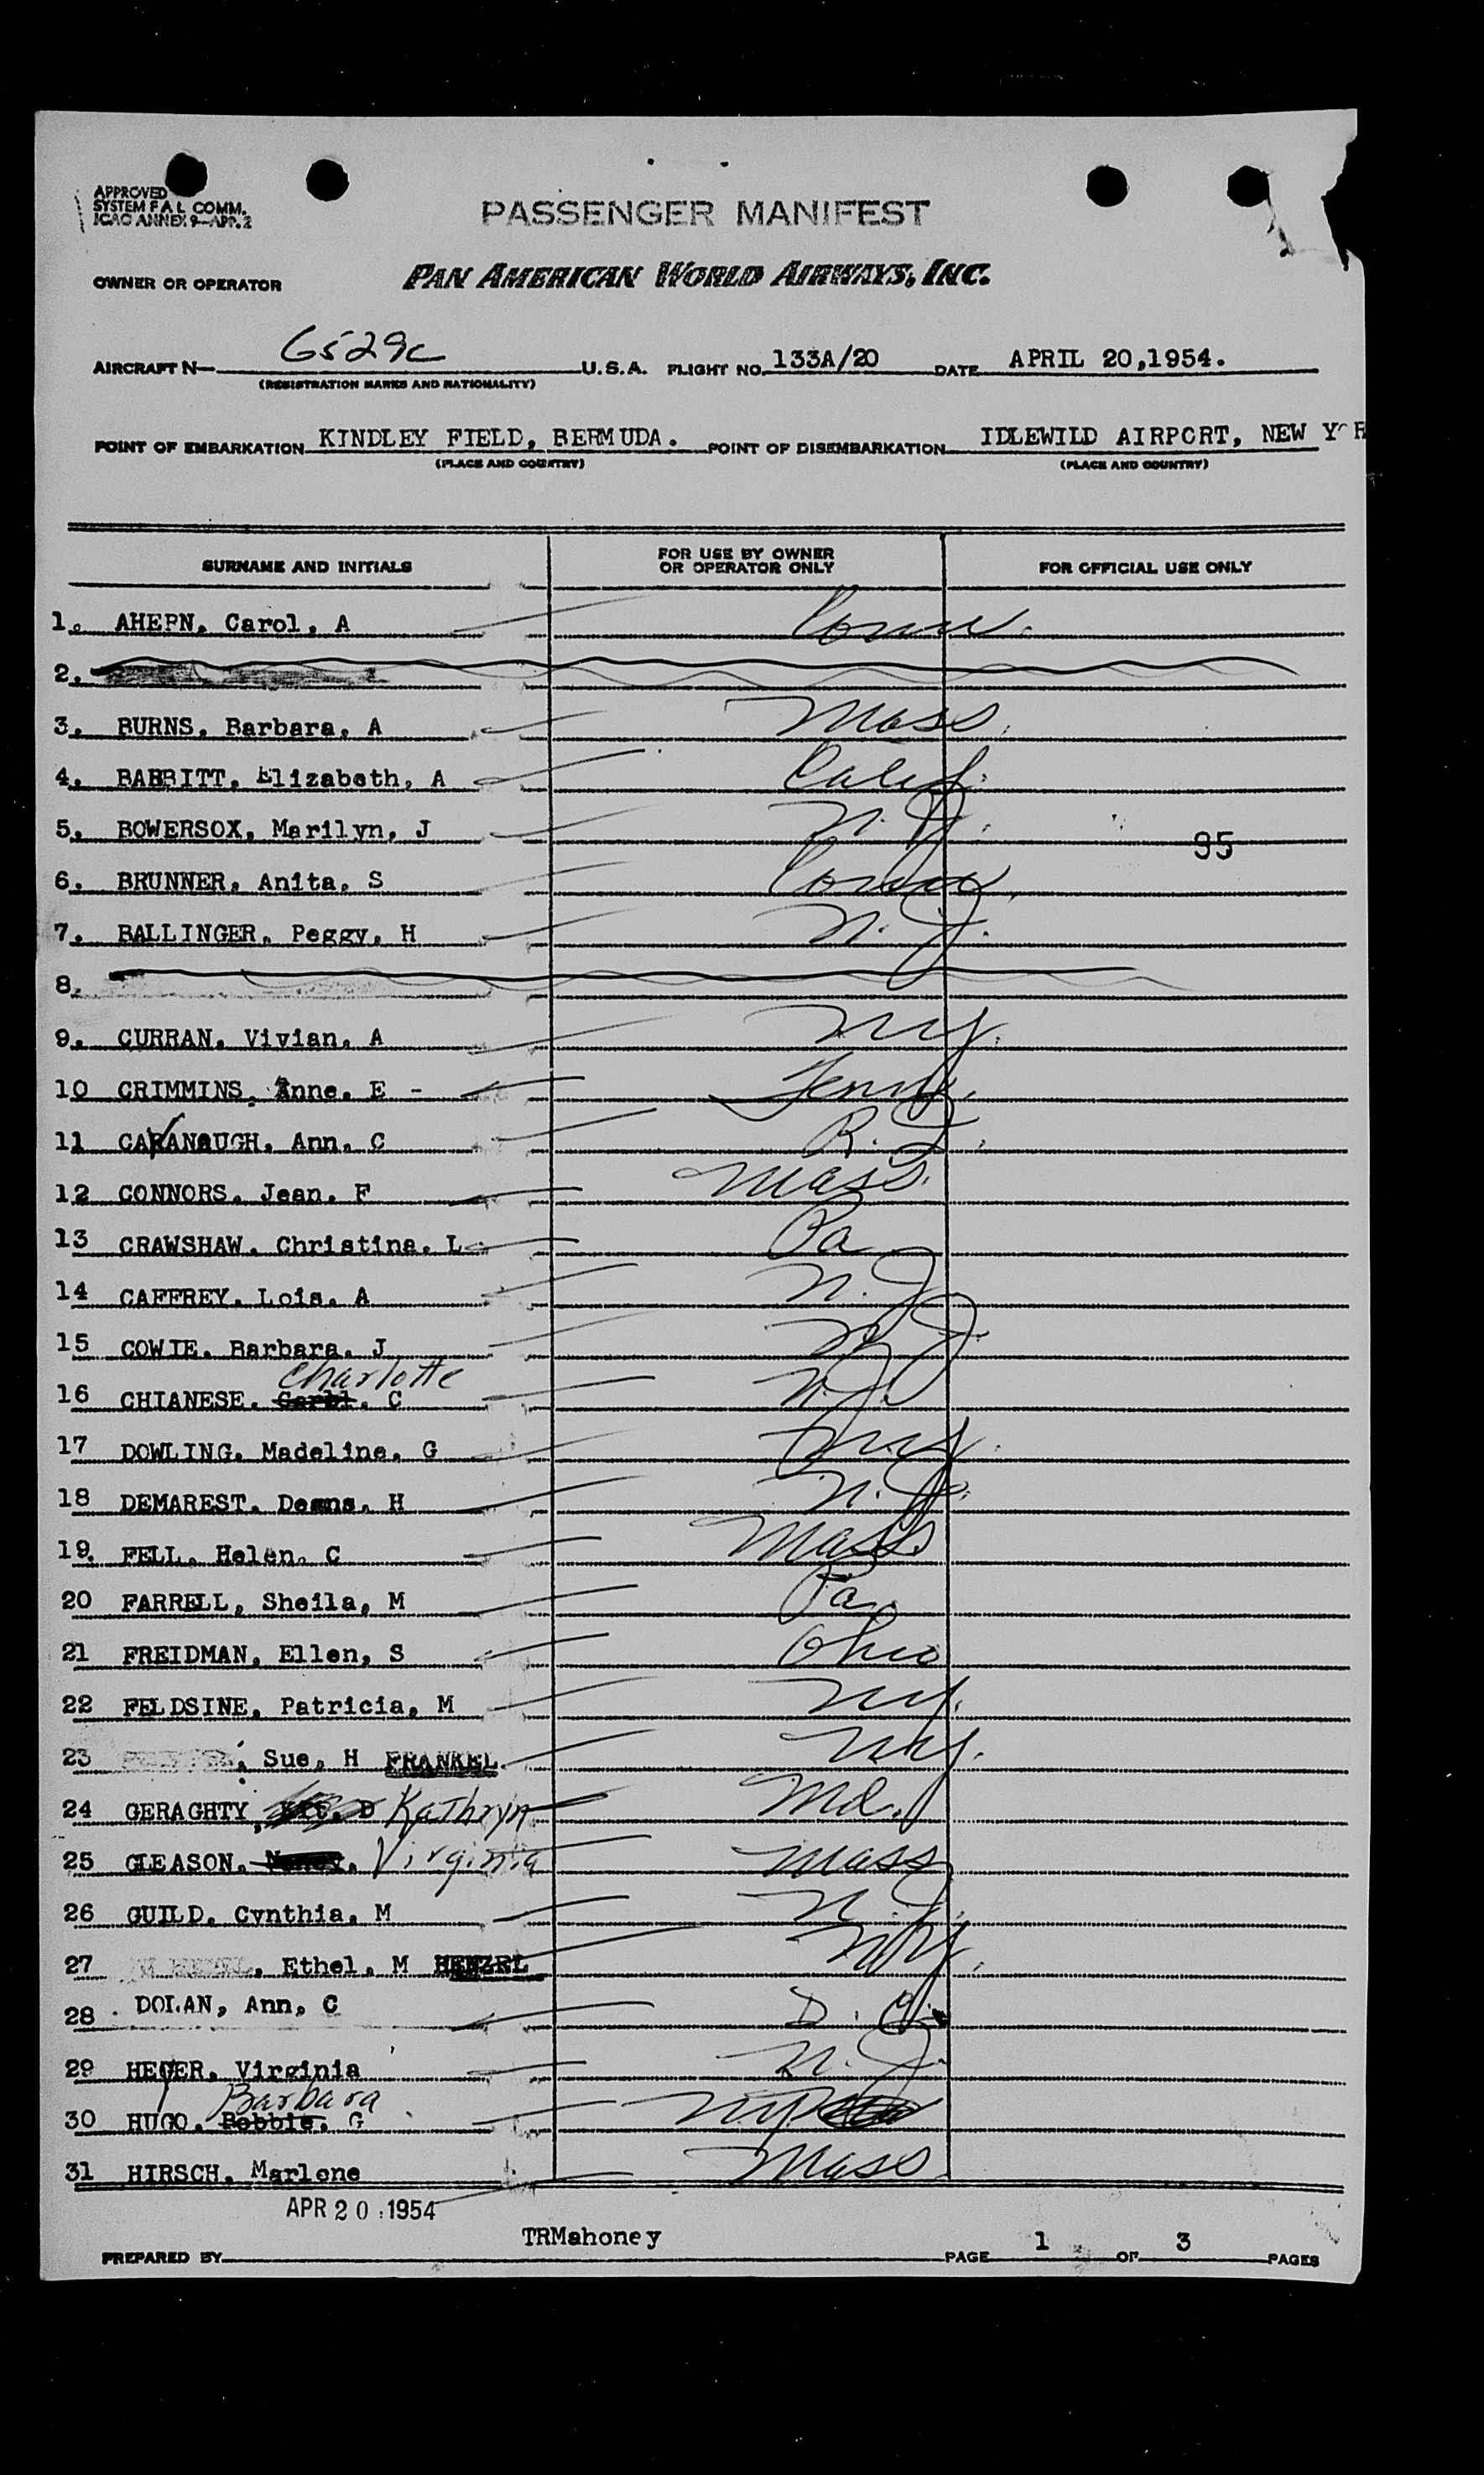 APPROVED
SYSTEM F A L COMM.
ICAO ANNEX 9—APP. 2
PASSENGER MANIFEST
OWNER OR OPERATOR PAN AMERICAN WORLD AIRWAYS, INC.
AIRCRAFT N— 6529c U.S.A. FLIGHT NO. 133A/20 DATE APRIL 20,1954.
(REGISTRATION MARKS AND NATIONALITY)
POINT OF EMBARKATION KINDLEY FIELD, BERMUDA. POINT OF DISEMBARKATION IDLEWILD AIRPORT, NEW YOR
(PLACE AND COUNTRY) (PLACE AND COUNTRY)
SURNAME AND INITIALS FOR USE BY OWNER OR OPERATOR ONLY FOR OFFICIAL USE ONLY
1. AHERN, Carol, A Conn.
2.
3. BURNS, Barbara, A Mass.
4. BABBITT, Elizabeth, A Calif.
5. BOWERSOX, Marilyn, J N.J. 95
6. BRUNNER, Anita, S Conn
7. BALLINGER, Peggy, H N.J.
8.
9. CURRAN, Vivian, A NY.
10 CRIMMINS, Anne, E - Tenn.
11 CAVANAUGH, Ann, C R.I.
12 CONNORS, Jean, F Mass.
13 CRAWSHAW, Christine, L Pa
14 CAFFREY, Lois, A N.J.
15 COWIE, Barbara, J N.J.
Charlotte
16 CHIANESE, Carol, C N.J.
17 DOWLING, Madeline, G NY.
18 DEMAREST, Deana, H N.J.
19. FELL, Helen, C Mass.
20 FARRELL, Sheila, M Pa.
21 FREIDMAN, Ellen, S Ohio
22 FELDSINE, Patricia, M NY.
23 , Sue, H FRANKEL NY.
24 GERAGHTY, D Kathryn Md.
25 GLEASON, Virginia Mass
26 GUILD, Cynthia, M N.J.
27 , Ethel, M HENZEL NY.
28 DOLAN, Ann, C D.C.
29 HEYER, Virginia N.J.
Barbara
30 HUGO, Bobbie, G NY
31 HIRSCH, Marlene Mass
APR 20 1954
PREPARED BY TRMahoney PAGE 1 OF 3 PAGES